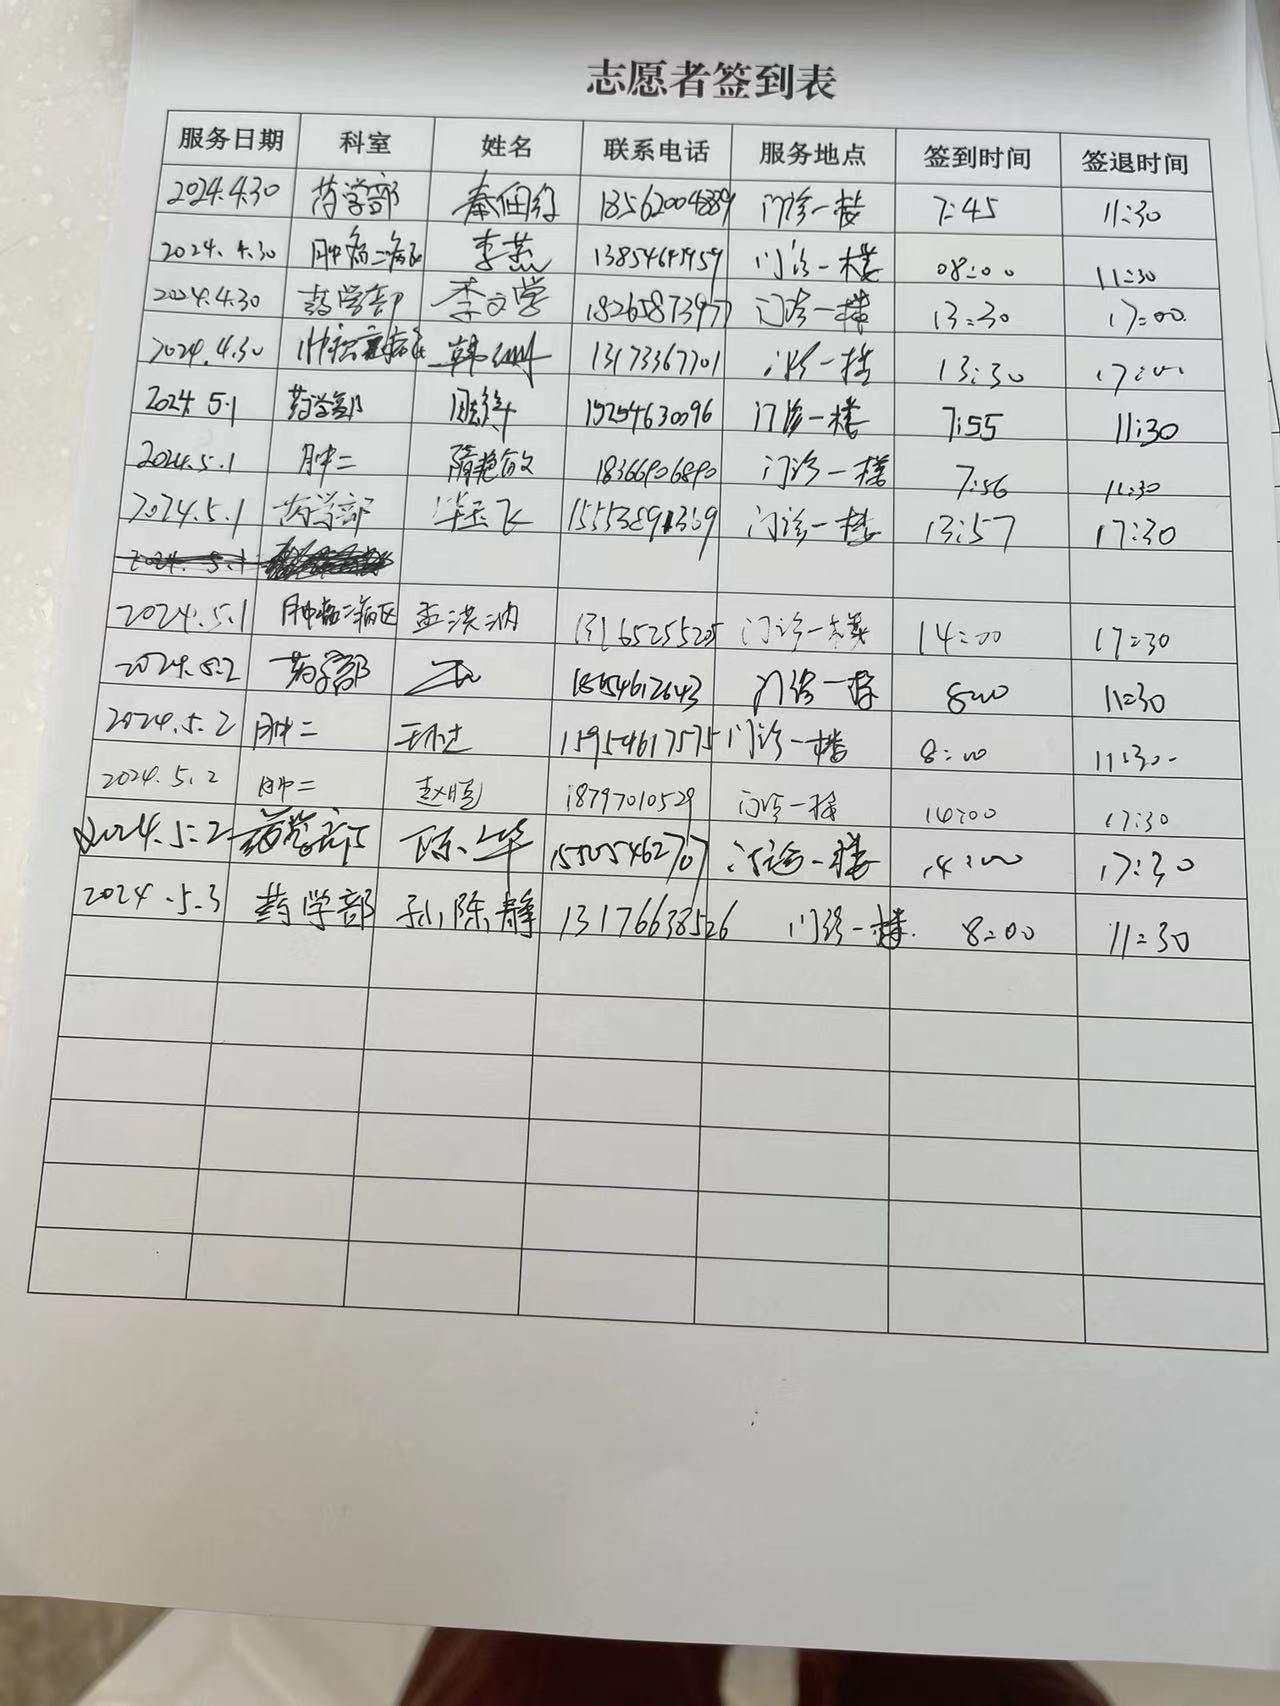 志愿者签到表
服务日期 科室 姓名 联系电话 服务地点 签到时间 签退时间
2024.4.30 药学部 门诊一楼 7:45 11:30
2024.4.30 肿瘤二病区 李燕 门诊一楼 08:00 11:30
2024.4.30 药学部 李文学 18265873977 门诊一楼 13:30 17:00
2024.4.30 13173367701 门诊一楼 13:30 17:00
2024.5.1 药学部 15254630096 门诊一楼 7:55 11:30
2024.5.1 肿二 隋艳敏 18366906890 门诊一楼 7:56 11:30
2024.5.1 药学部 15553891369 门诊一楼 13:57 17:30
2024.5.1
2024.5.1 肿瘤二病区 孟洪娜 门诊一楼 14:00 17:30
2024.5.2 药学部 门诊一楼 8:00 11:30
2024.5.2 肿二 15954617575 门诊一楼 8:00 11:30
2024.5.2 肿二 18797010529 门诊一楼 14:00 17:30
2024.5.2 药学部 陈华 门诊一楼 14:00 17:30
2024.5.3 药学部 孙陈静 13176638526 门诊一楼 8:00 11:30